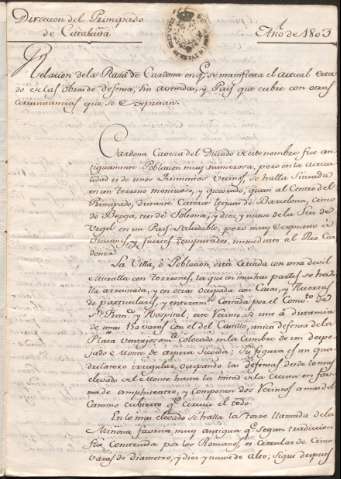 Direccion del Principado
de Cataluña.
Año de 1803
Relacion de la Plaza de Cardona en q.e se manifiesta el actual estado
de las obras de defensa, sus avenidas, y Pais que cubre con otras
circunstancias que se Expresan.
Cardona Caveza del Ducado de este nombre fue antiguamente
Poblacion muy numerosa, pero en la actualidad
es de unos Vecinos, se halla Situada
en un terreno montuoso, y quebrado, quasi al Centro del
Principado, distante Catorce leguas de Barcelona, cinco
de Berga, tres de Solsona, y diez, y nueve de la Seu de
Urgel en un Pais Saludable, pero muy Expuesto à
fuertes inmediato al Rio Cardoner.
La Villa, ò Poblacion està Cercada con una devil
Muralla con torreones, la que en muchas partes se halla
arruinada, y en otras ocupada con Casas, y Huertos
de particulares, y enteram.te Cortada por el Comb.to de
S.n Fran.co y Hospital, cuyo Recinto se une à distancia
de unas varas con el del Castillo, unica defensa de la
Plaza ventajosam.te colocado en la Cumbre de un
de aspera Subida; Su figura es un quadrilatero
irregular, ocupando las defensas desde lo mas
elevado del Monte hasta la mitad de la en forma
de amphiteatro, y componen dos Recintos à mas del
Camino cubierto q.e circuie el todo.
En lo mas elevado se halla la Torre llamada de la
Miñona fabrica muy antigua q.e segun tradicion
fue Construida por los Romanos, es circular de cinco
varas de diametro, y diez y nueve de alto, Sigue despues